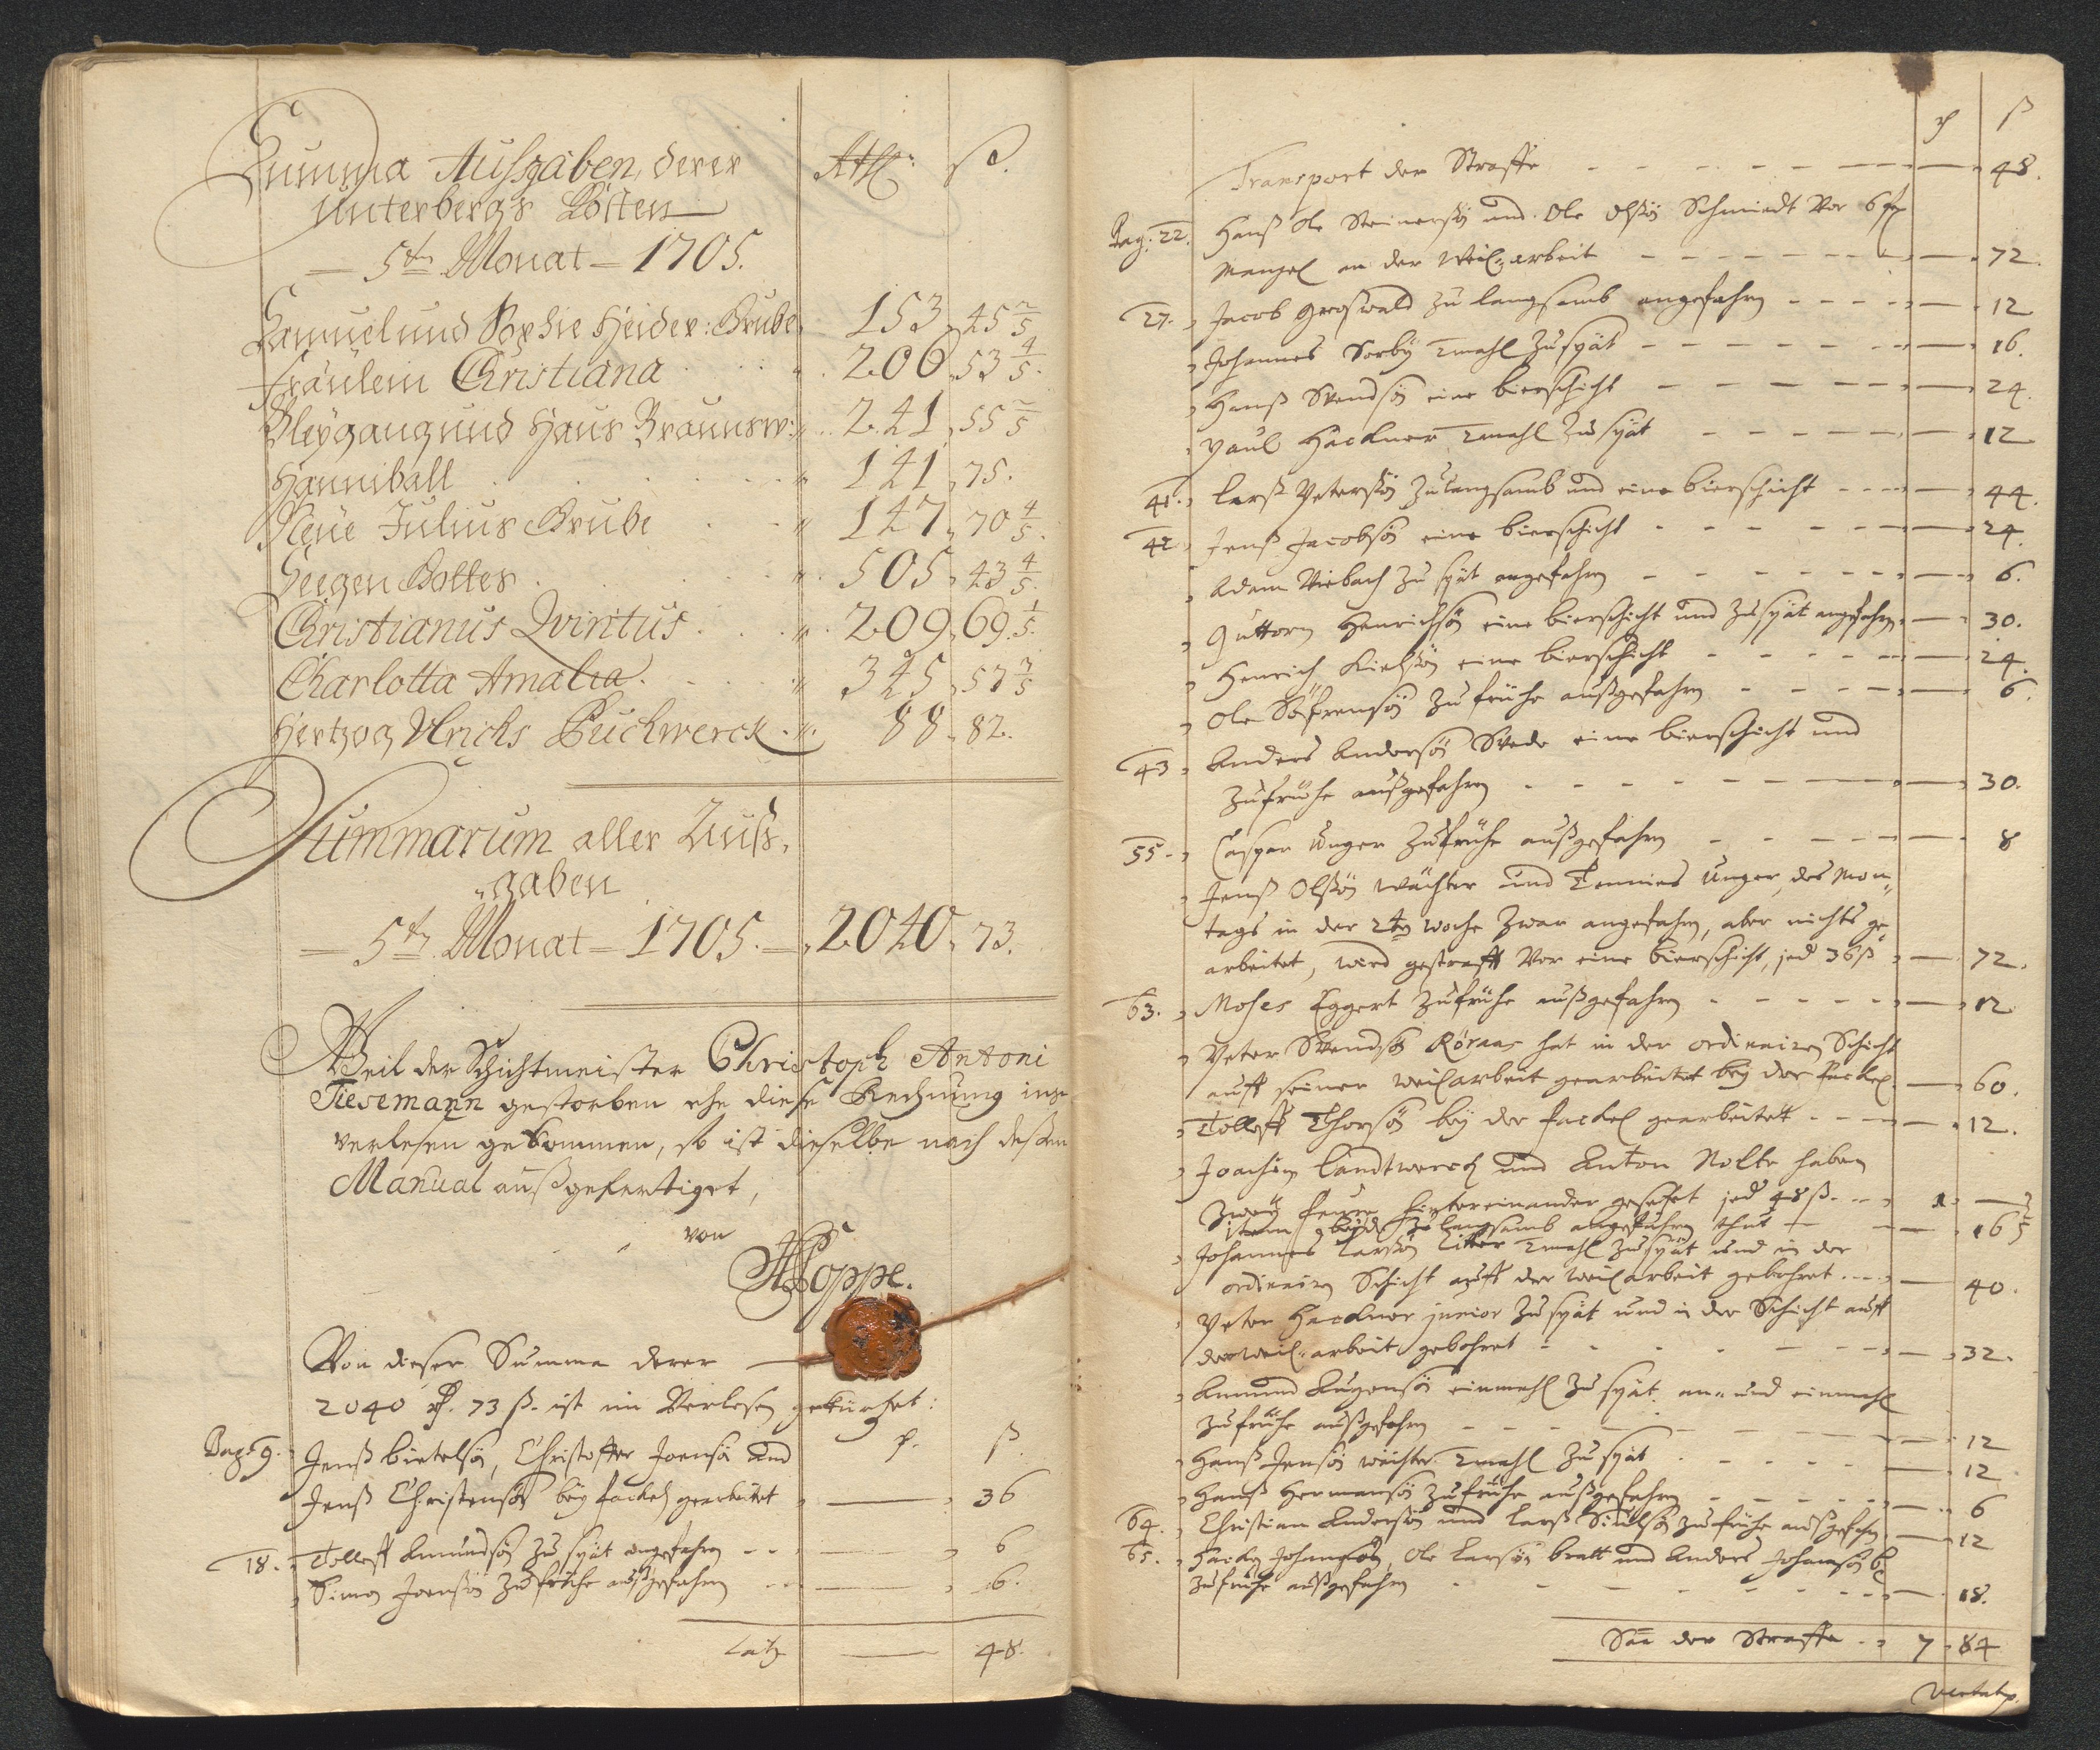 Summa Aussgaben, derer Rthl: ß.
Unterbergs Kosten
5tn Monat 1705.
Samuel und Sophie Heider: Grube 153 45 2/5
Fräulein Christiana 200 53 4/5.
Bleygang und Haus Braunsw: 241 55 2/5
Hanniball 141 75.
Neue Julius Grube 147 70 4/5.
Seegen Gottes 505 43 4/5.
Christianus Qvintus 209 69 1/5.
Charlotta Amalia 345 57 3/5
Hertzog Ulrichs Puchwerck 88 82.
Summarum aller Auss,
gaben
5tn Monat 1705. 2040 73.
Weil der Schichtmeister Christoph Antoni
Tiesemann gestorben ehe diese Rechnung ins
verlesen gekommen, so ist dieselbe nach dessen
Manual außgefertiget,
von
Hoppe.
Von dieser Summa derer
2040 R. 73 ß. ist im Verlesen gekürtzet:
Pag: 9. Jenß , Christoffer Joensön und
Jenß Christensön bey fackel gearbeitet 36
18. Tolleff Amundsön zu spät angefahren 6
Simon Joensön zu frühe außgefahren 6.
Latz 48.
R ß
Transport der Straffe 48.
Pag: 22. Hanß Ole Steinersön und Ole Olsön Schmiedt vor 6
Mangel an der Weil=arbeit 72.
27. Jacob Großwald zu langsamb angefahren 12
Johannes Sorby 2mahl zu spät 16.
Hanß Svendsön eine bierschicht 24.
Paul Hackner 2mahl zu spät 12
41. Larß Petersön zu langsamb und eine bierschicht 44.
42. Jenß Jacobsön eine bierschicht 24.
Adam Viebach zu spät angefahren 6.
Guttorm Henrichsön eine bierschicht und zu spät angefahren 30.
Henrich eine bierschicht 24.
Ole Söfrensön zu frühe außgefahren 6.
43. Anders Andersön Svede eine bierschicht und
zu frühe außgefahren 30.
55. Caspar Unger zu frühe außgefahren 8
Jenß Olsön Wächter und Tennies Unger, des Mon,,
tags in der 2ten Woche zwar angefahren, aber nichts ge
arbeitet, wird gestrafft vor eine bierschicht, jed 36 ß 72.
63. Moses Eggert zu frühe außgefahren 12
Peter Svendsön Röraas hat in der ordinairen Schicht
auff seiner Weilarbeit gearbeitet bey der fackel 60.
Tolleff Thorsön bey der fackel gearbeitet 12.
Joachim Landtwerck und Anton Nolte haben
Zwey feure hintereinander gesetzet jed 48 ß. 1.
item beyde zu langsamb angefahren thut 16 2/5
Johannes Larsön Litter 2mahl zu spät und in der
ordinairen Schicht auff der Weilarbeit gebohret 40.
Peter Hackner junior zu spät und in der Schicht auff
der Weil=arbeit gebohret 32.
Amund einmahl zu spät an= und einmahl
zu frühe außgefahren 12
Hanß Jensön Wächter 2mahl zu spät 12
Hanß Hermansön zu frühe außgefahren 6
64. Christian Andersön und Larß zu frühe außgefahren 12
65. Johansön, Ole Larsön bratt und Anders Johansön
zu frühe außgefahren 18.
Sũa der Straffe 7 84
Vertatur.